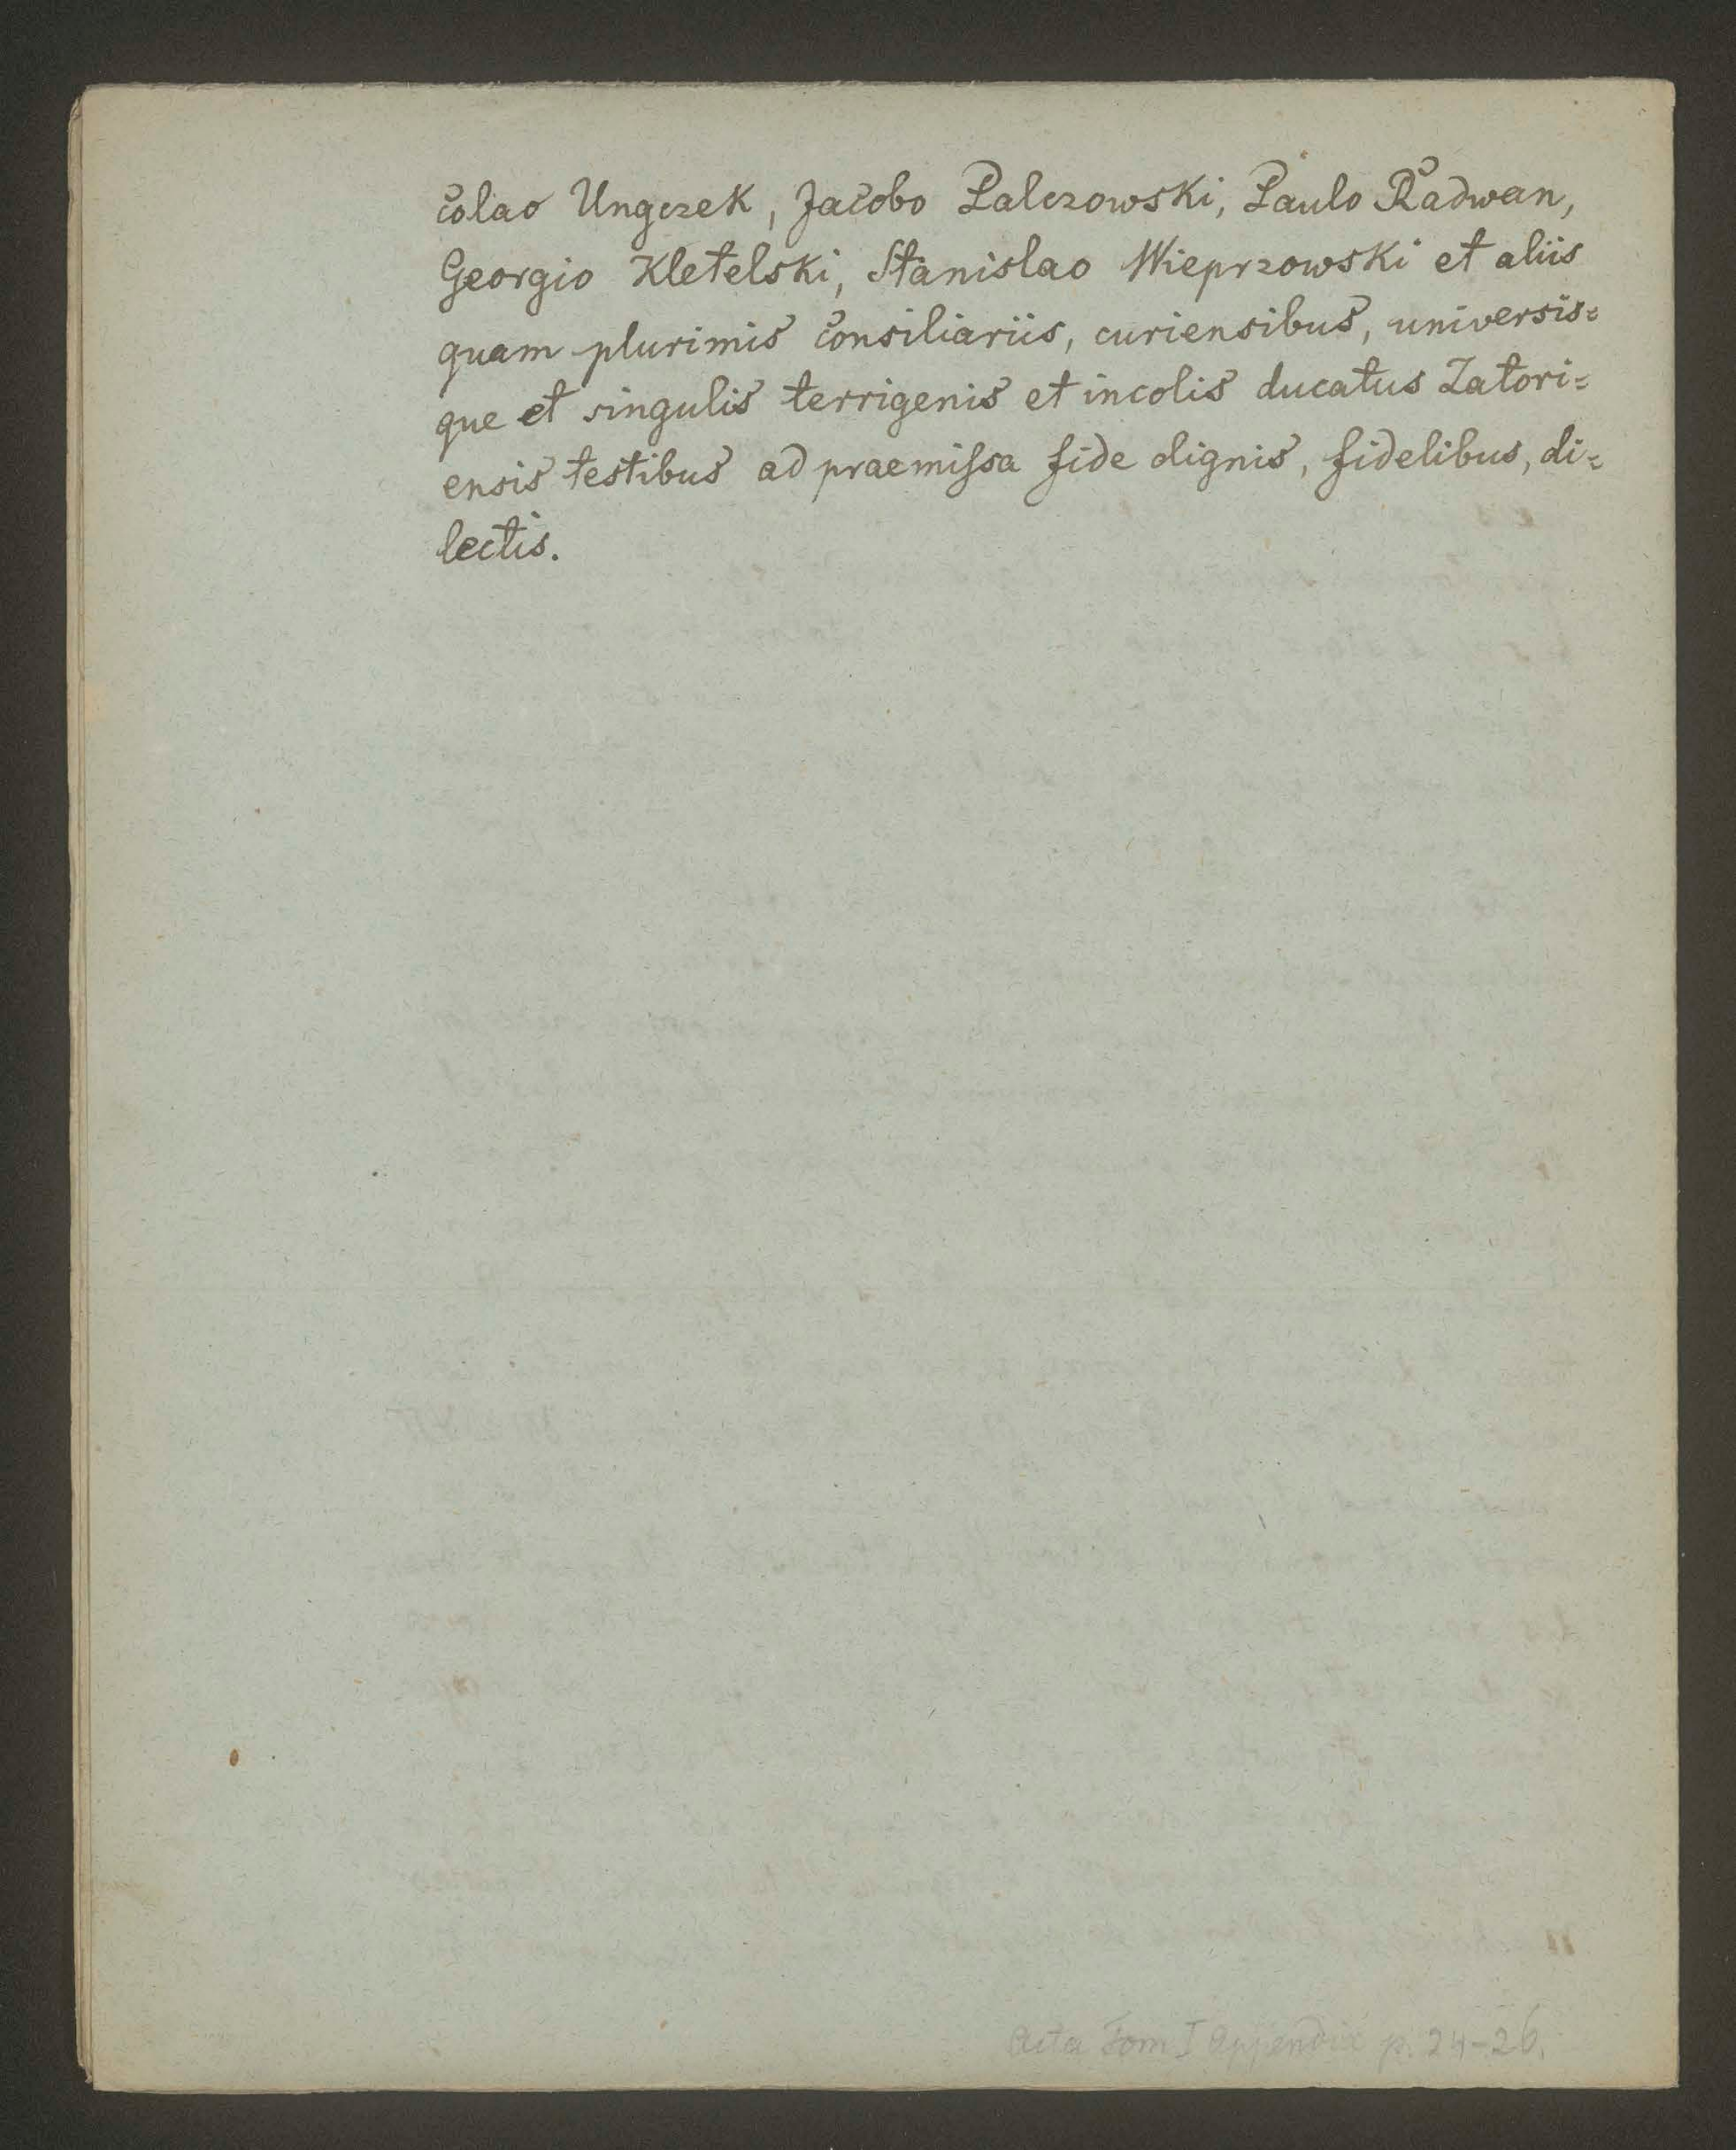 colao Ungczek, Jacobo Palczowski, Paulo Radwan,
Georgio Kletelski, Stanislao Wieprzowski et aliis
quam plurimis consiliariis, curiensibus, universis=
que et singulis terrigenis et incolis ducatus Zatori=
ensis testibus ad praemiſsa fide dignis, fidelibus, di=
lectis.
Acta Tom I Appendix p. 24-26.